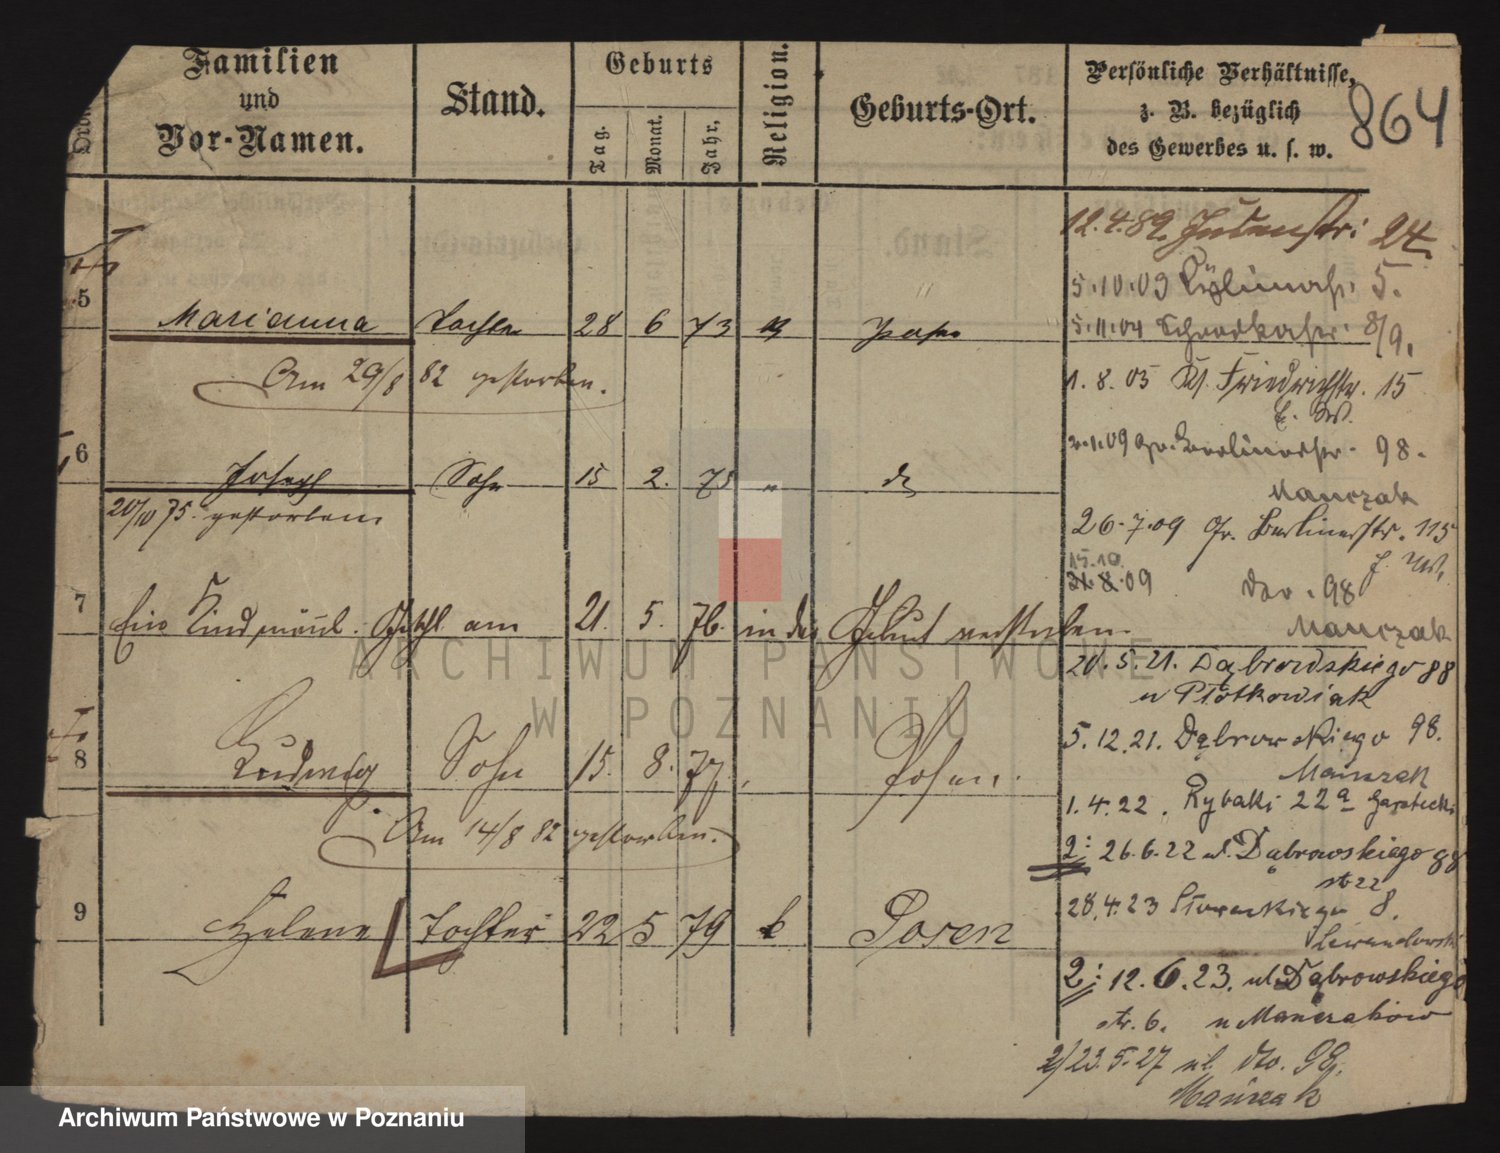 Familien
und
Vor-Namen.
Stand.
Geburts
Tag.
Monat.
Jahr.
Religion.
Geburts-Ort.
Persönliche Verhältnisse,
z. B. bezüglich
des Gewerbes u. s. w.
864
12.4.89. 24
5.10.03 5.
5 Marianna Tochter 28 6 73 Posen
5.11.04 8/9.
Am 29/8 82 gestorben.
1.8.05 Kl. Friedrichstr. 15
2.1.09 Gr. Berlinerstr. 98.
6 Joseph Sohn 15 2. 75 "
Mańczak
20/10 75. gestorben.
26.7.09 Gr. Berlinerstr. 115
15.10.
31.8.09 98
7 Ein Kind männl. Geschl. am 21. 5. 76. in der Geburt verstorben.
Mańczak
20.5.21. Dąbrowskiego 88
u Płotkowiak
5.12.21. Dąbrowskiego 98.
8 Ludwig Sohn 15. 8. 77. Posen.
Mańczak
1.4.22. Rybaki 22a
Am 14/8 82 gestorben.
2: 26.6.22 ul. Dąbrowskiego 88
28.4.23 8.
9 Helene Tochter 22 5 79 k Posen
Lewandowski
2: 12.6.23. ul. Dąbrowskiego
str. 6. u Mańczaków
2/23.5.27 ul. dto. 98.
Mańczak
ARCHIWUM PAŃSTWOWE
W POZNANIU
Archiwum Państwowe w Poznaniu